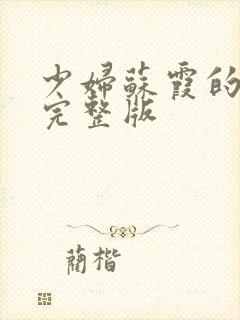 少婦蘇霞的
完整版
蔺楷